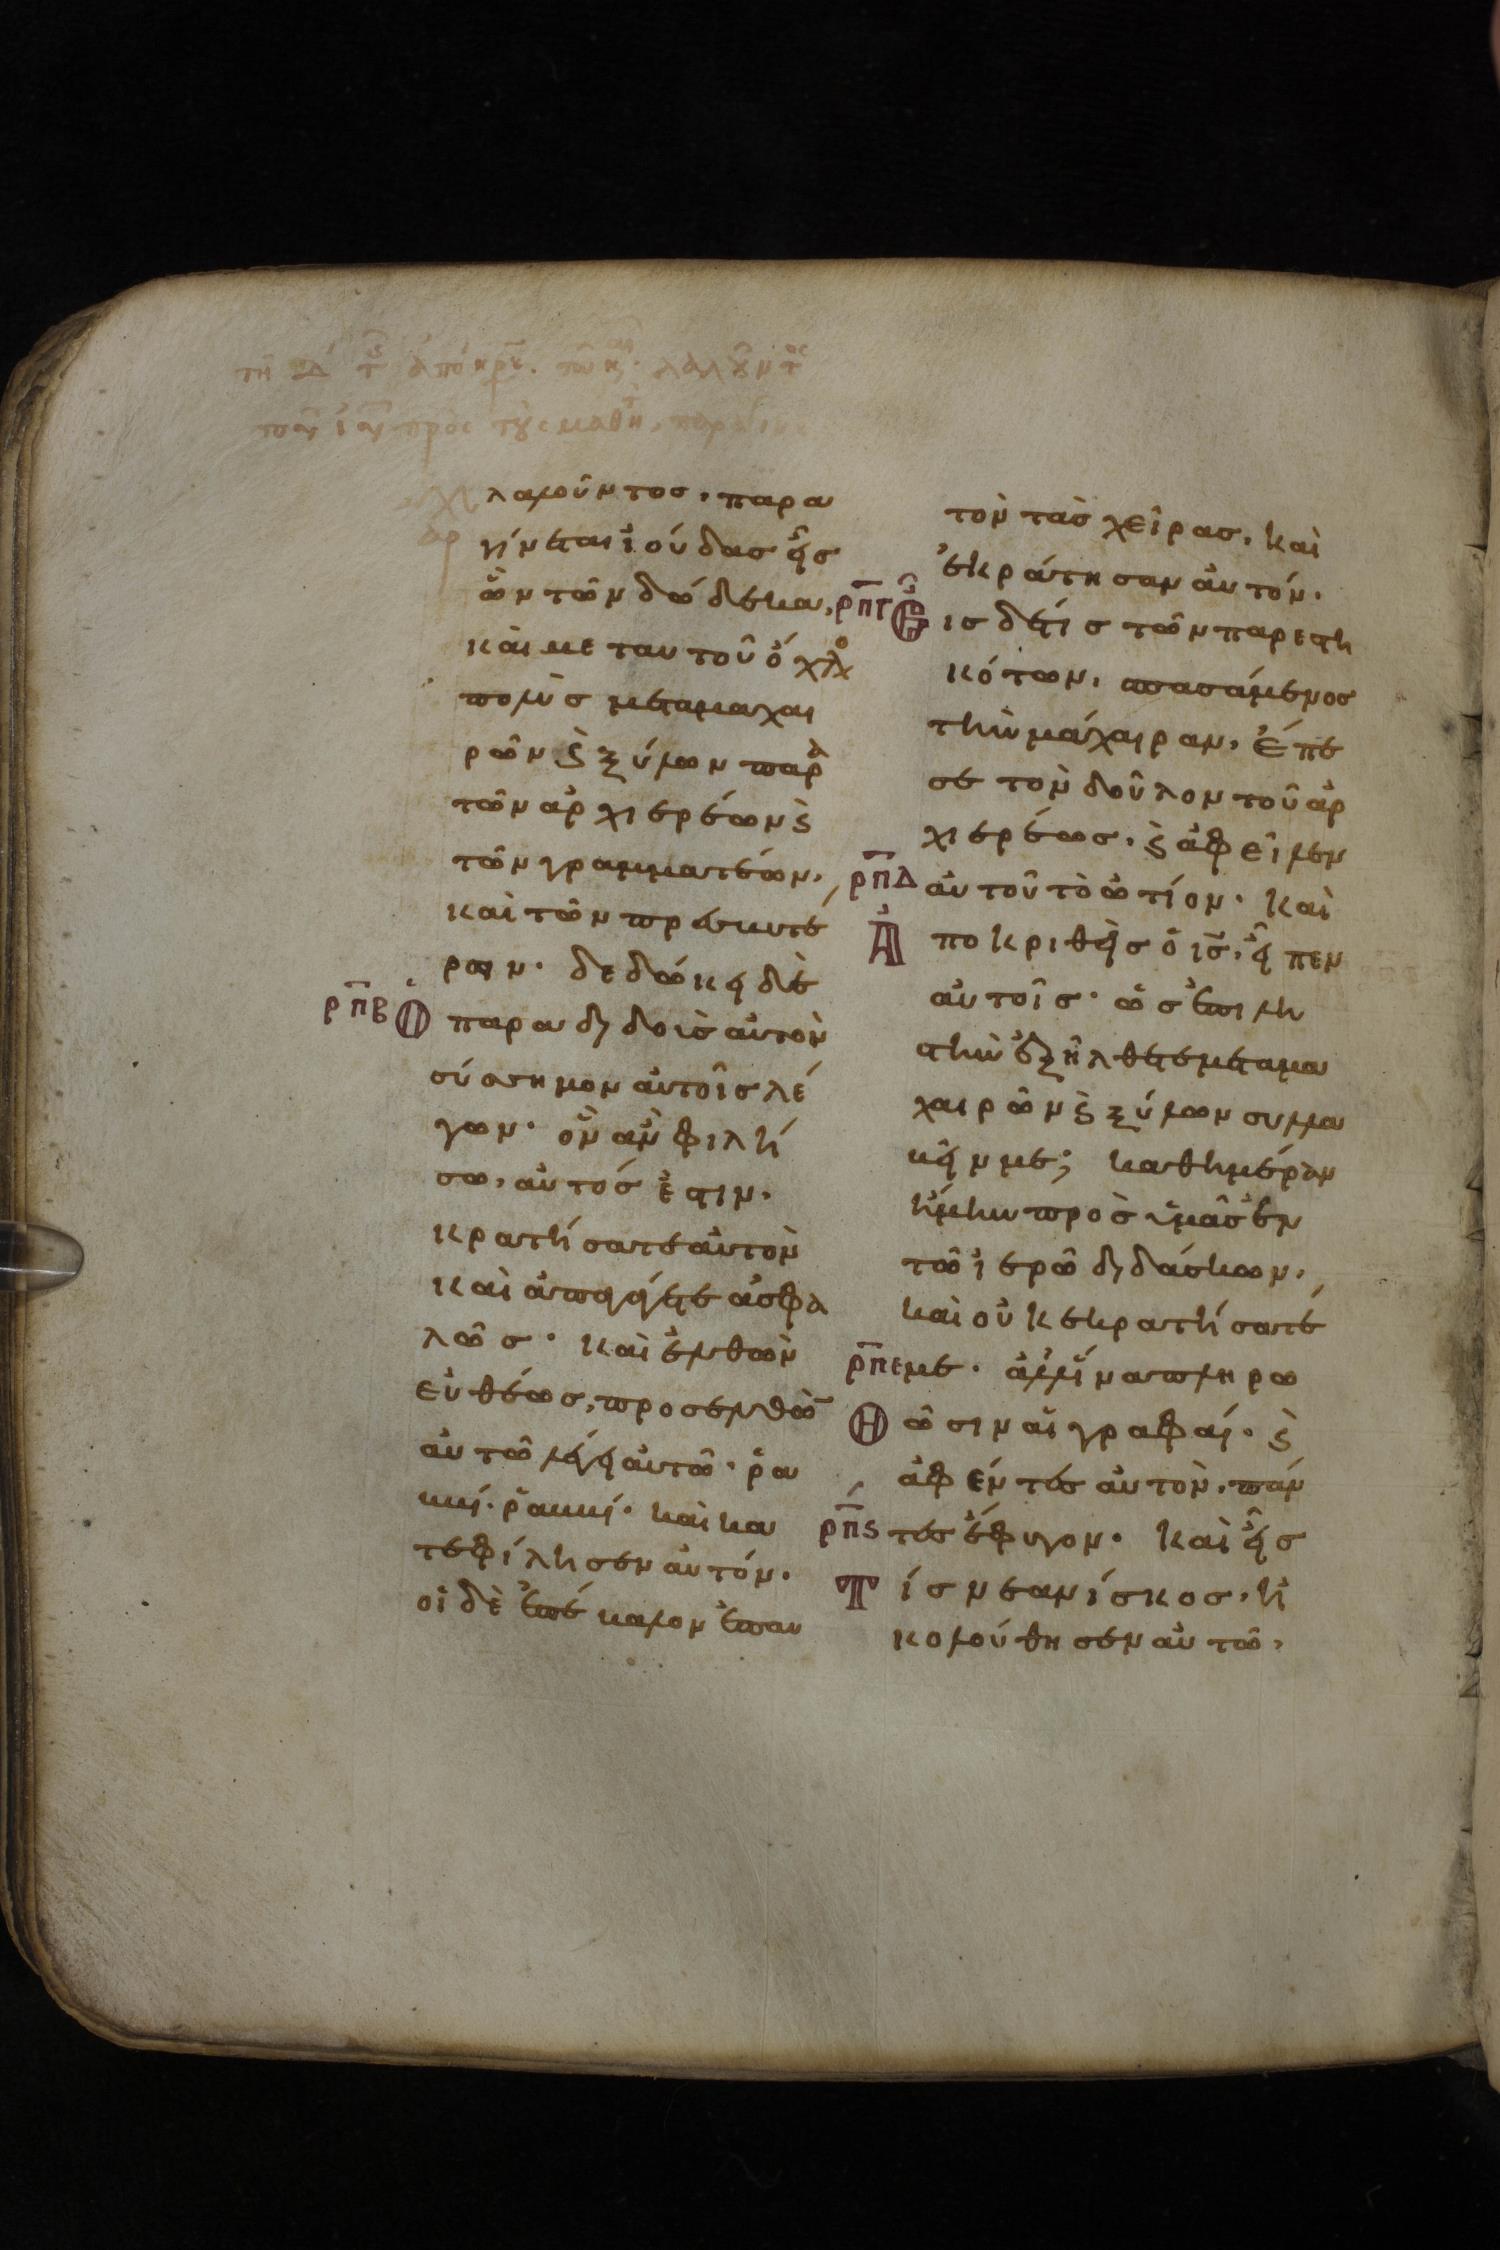 τη Δ τς ἀπόκρε. τῶ κ λαλοῦντος
τοῦ ἰυ πρὸς τοὺς μαθη, παρα
λαλοῦντος, παρα
γίνεται ἰούδας εἷς
ὢν τῶν δώδεκα,
καὶ μετ αυτοῦ ὄχλο
πολὺς μεταμαχαι
ρῶν ϛ ξύλων παρὰ
τῶν ἀρχιερέων ϛ
τῶν γραμματέων,
καὶ τῶν πρεσβυτέ
ρων. δεδώκει δὲ
ρπβ Ὁ παραδιδοὺς αὐτὸν
σύσσημον αὐτοῖς λέ
γων. ὃν ἂν φιλή
σω, αὐτός ἐστιν.
κρατήσατε αὐτὸν
καὶ ἀπαγάγετε ἀσφα
λῶς. καὶ ἐλθὼν
εὐθέως, προσελθὼ
αὐτῶ λέγει αὐτῶ. ῥα
ββί. ῥαββί. καὶ κα
τεφίλησεν αὐτόν.
οἱ δὲ ἐπέβαλον ἐπαυ
τὸν τὰσ χεῖρας, καὶ
ἐκράτησαν αὐτόν.
ρπγ Εἷ ισ δέ τις τῶν παρεστη
κότων, σπασάμενος
τὴν μάχαιραν, ἔπε
σε τὸν δοῦλον τοῦ ἀρ
χιερέως, ϛ ἀφεῖλεν
ρπδ αὐτοῦ τὸ ὠτίον. καὶ
Ἀ ποκριθεὶς ὁ ις, εἶπεν
αὐτοῖς. ὡς ἐπι λη
στὴν ἐξήλθετε μετα μα
χαιρῶν ϛ ξύλων συλλα
βεῖν με; καθημέραν
ἤμην πρὸς ὑμᾶς ἐν
τῶ ἱερῶ διδάσκων,
καὶ οὐκ εκρατήσατέ
ρπε με. ἀλλ ἵνα πληρω
Θ ῶσιν αἱ γραφαί. ϛ
ἀφέντες αὐτὸν, πάν
ρπϛ τες ἔφυγον. καὶ εἷς
Τ ίς νεανίσκος, ἠ
κολούθησεν αὐτῶ,